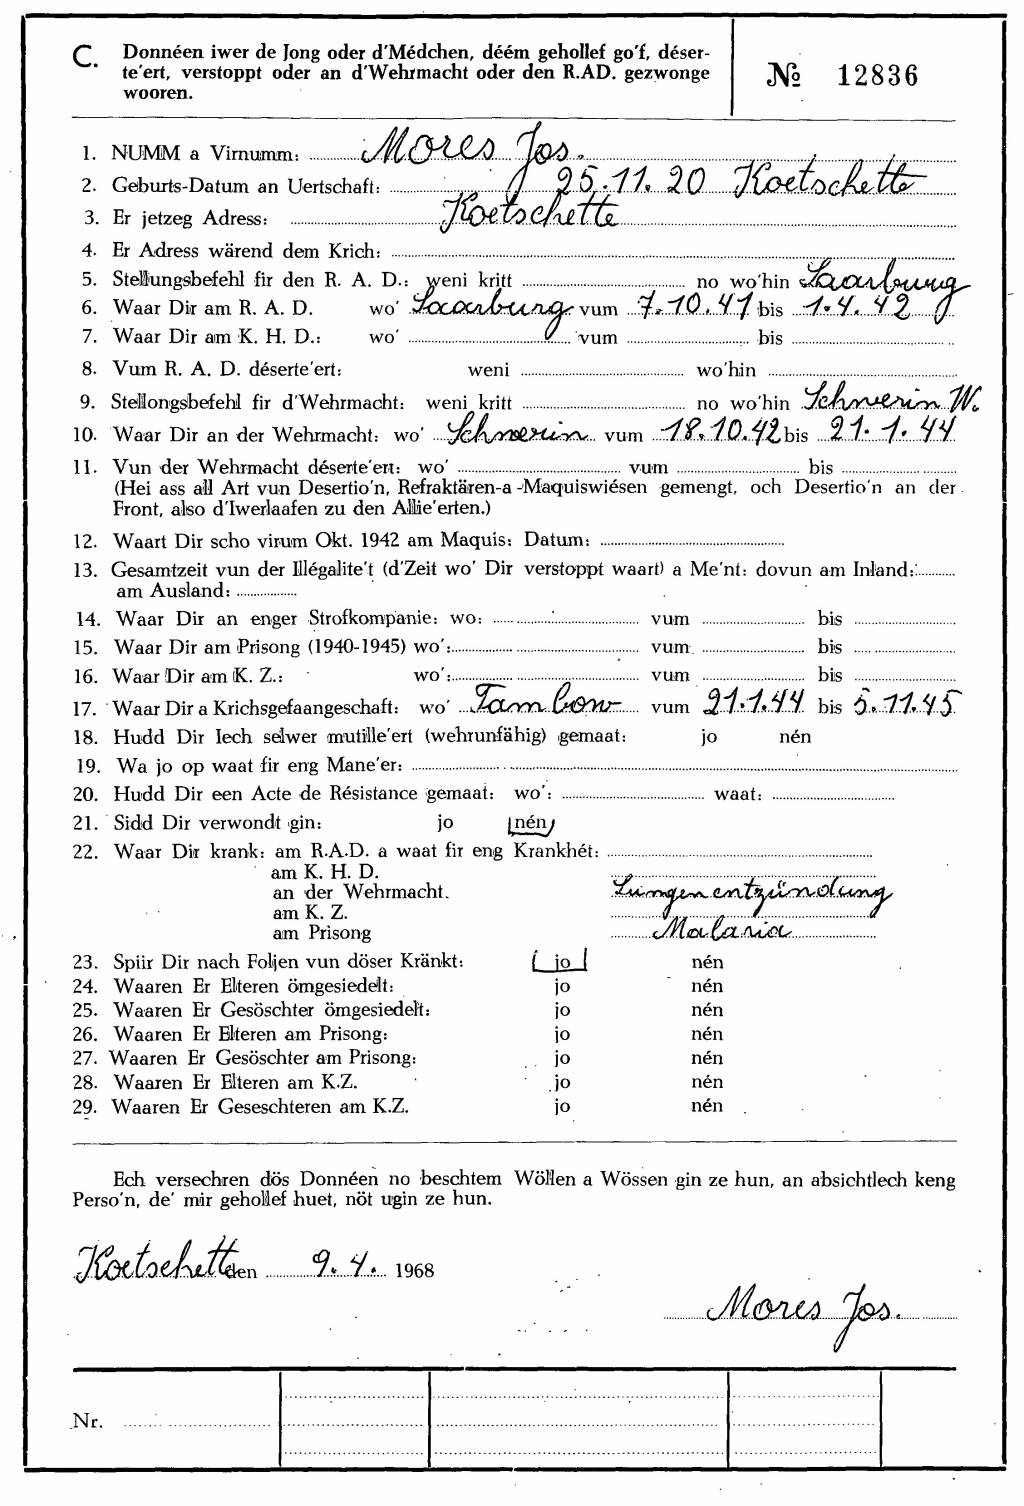 C. Donnéen iwer de Jong oder d'Médchen, déém gehollef go'f, déser-
te'ert, verstoppt oder an d'Wehrmacht oder den R.AD. gezwonge
wooren.
№ 12836
1. NUMM a Virnumm: Mores Jos.
2. Geburts-Datum an Uertschaft: 25.11.20 Koetschette
3. Er jetzeg Adress: Koetschette
4. Er Adress wärend dem Krich:
5. Stellungsbefehl fir den R. A. D.: weni kritt no wo'hin Saarburg
6. Waar Dir am R. A. D. wo' Saarburg vum 7.10.41 bis 1.4.42
7. Waar Dir am K. H. D.: wo' vum bis
8. Vum R. A. D. déserte'ert: weni wo'hin
9. Stellongsbefehl fir d'Wehrmacht: weni kritt no wo'hin Schwerin W.
10. Waar Dir an der Wehrmacht: wo' Schwerin vum 18.10.42 bis 21.1.44
11. Vun der Wehrmacht déserte'ert: wo' vum bis
(Hei ass all Art vun Desertio'n, Refraktären-a-Maquiswiésen gemengt, och Desertio'n an der
Front, also d'Iwerlaafen zu den Allie'erten.)
12. Waart Dir scho virum Okt. 1942 am Maquis: Datum:
13. Gesamtzeit vun der Illégalite't (d'Zeit wo' Dir verstoppt waart) a Me'nt: dovun am Inland:
am Ausland:
14. Waar Dir an enger Strofkompanie: wo: vum bis
15. Waar Dir am Prisong (1940-1945) wo': vum bis
16. Waar Dir am K. Z.: wo': vum bis
17. Waar Dir a Krichsgefaangeschaft: wo' Tambow vum 21.1.44 bis 5.11.45
18. Hudd Dir Iech selwer mutille'ert (wehrunfähig) gemaat: jo nén
19. Wa jo op waat fir eng Mane'er:
20. Hudd Dir een Acte de Résistance gemaat: wo': waat:
21. Sidd Dir verwondt gin: jo nén
22. Waar Dir krank: am R.A.D. a waat fir eng Krankhét:
am K. H. D.
an der Wehrmacht. Lungenentzündung
am K. Z.
am Prisong Malaria
23. Spiir Dir nach Foljen vun döser Kränkt: jo nén
24. Waaren Er Elteren ömgesiedelt: jo nén
25. Waaren Er Gesöschter ömgesiedelt: jo nén
26. Waaren Er Elteren am Prisong: jo nén
27. Waaren Er Gesöschter am Prisong: jo nén
28. Waaren Er Elteren am K.Z. jo nén
29. Waaren Er Geseschteren am K.Z. jo nén
Ech versechren dös Donnéen no beschtem Wöllen a Wössen gin ze hun, an absichtlech keng
Perso'n, de' mir gehollef huet, nöt ugin ze hun.
Koetschette den 9.4. 1968
Mores Jos.
Nr.